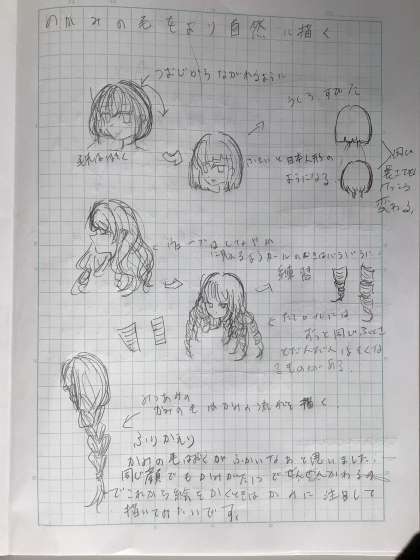 かみの毛をより自然に描く
つむじからながれるように
うしろすがた
毛先はほそく
日本人形の
ようになる。
同じ
長さでも
けっこう
変わる
ウェーブはしなやか
に見えるようカールのむきはいろいろ。
練習
たてロールには
ずっと同じふとさ
とだんだんほそくな
るものがある。
みつあみの
かみの毛はかみの流れを描く。
ふりかえり
かみの毛はおくがふかいなあと思いました。
同じ顔でもかみがたでぜんぜんかわるの
でこれから絵をかくときはかみに注目して
描いてみたいです。